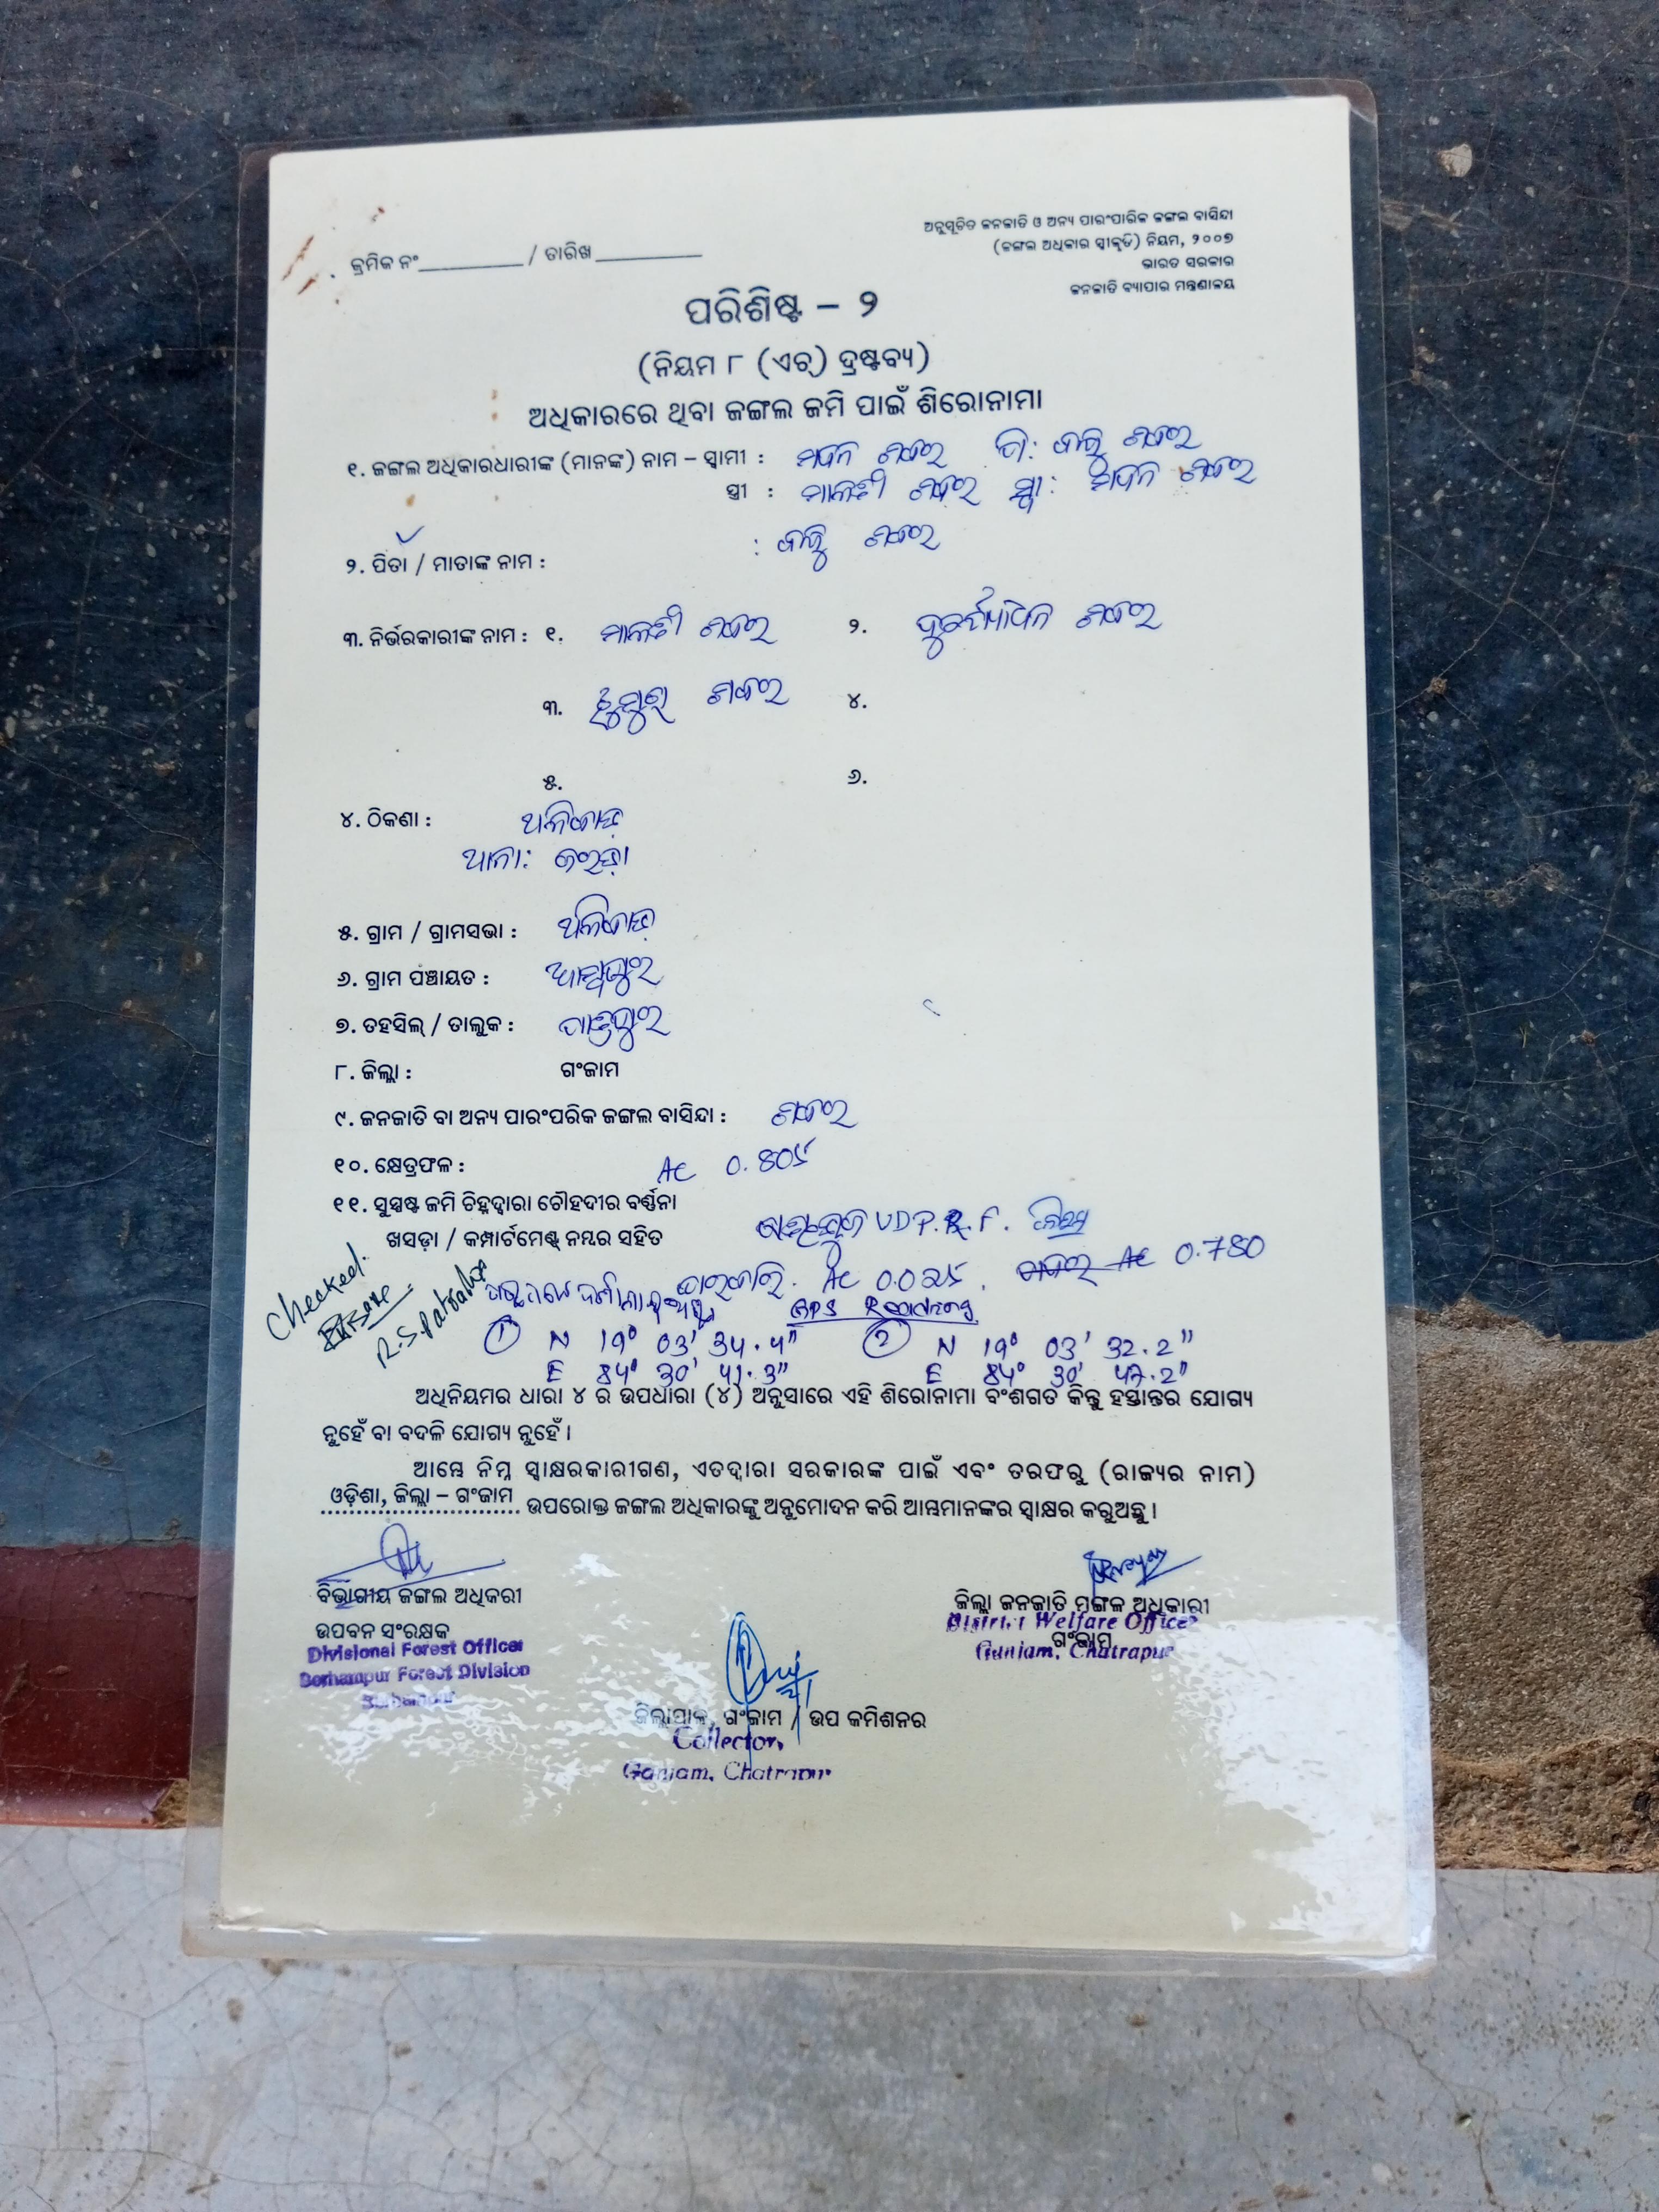 ଅନୁସୂଚିତ ଜନଜାତି ଓ ଅନ୍ୟ ପାରଂପାରିକ ଜଙ୍ଗଲ ବାସିନ୍ଦା
(ଜଙ୍ଗଲ ଅଧିକାର ସ୍ୱୀକୃତି) ନିୟମ, ୨୦୦୭
ଭାରତ ସରକାର
ଜନଜାତି ବ୍ୟାପାର ମନ୍ତ୍ରଣାଳୟ
କ୍ରମିକ ନଂ / ତାରିଖ
ପରିଶିଷ୍ଟ – ୨
(ନିୟମ ୮ (ଏଚ୍) ଦ୍ରଷ୍ଟବ୍ୟ)
ଅଧିକାରରେ ଥିବା ଜଙ୍ଗଲ ଜମି ପାଇଁ ଶିରୋନାମା
୧. ଜଙ୍ଗଲ ଅଧିକାରଧାରୀଙ୍କ (ମାନଙ୍କ) ନାମ – ସ୍ୱାମୀ : ମଦନ ଶବର
ସ୍ତ୍ରୀ : ମାଳତୀ ଶବର ସ୍ୱା: ମଦନ ଶବର
୨. ପିତା / ମାତାଙ୍କ ନାମ : ଶବର
୩. ନିର୍ଭରକାରୀଙ୍କ ନାମ : ୧. ମାଳତୀ ଶବର ୨. ଦୁର୍ଯ୍ୟୋଧନ ଶବର
୩. ଶବର ୪.
୫. ୬.
୪. ଠିକଣା :
ଥାନା: ଜରଡ଼ା
୫. ଗ୍ରାମ / ଗ୍ରାମସଭା :
୬. ଗ୍ରାମ ପଞ୍ଚାୟତ :
୭. ତହସିଲ୍ / ତାଲୁକ : ପାତ୍ରପୁର
୮. ଜିଲ୍ଲା : ଗଂଜାମ
୯. ଜନଜାତି ବା ଅନ୍ୟ ପାରଂପରିକ ଜଙ୍ଗଲ ବାସିନ୍ଦା : ଶବର
୧୦. କ୍ଷେତ୍ରଫଳ : AC 0.805
୧୧. ସୁସ୍ପଷ୍ଟ ଜମି ଚିହ୍ନଦ୍ୱାରା ଚୌହଦୀର ବର୍ଣ୍ଣନା
ଖସଡ଼ା / କମ୍ପାର୍ଟମେଣ୍ଟ୍ ନମ୍ବର ସହିତ UDP.R.F.
Checked.
R.S.Patra
AC 0.025. AC 0.780
GPS Readings
① N 19° 03' 34.4" ② N 19° 03' 32.2"
E 84° 30' 41.3" E 84° 30' 47.2"
ଅଧିନିୟମର ଧାରା ୪ ର ଉପଧାରା (୪) ଅନୁସାରେ ଏହି ଶିରୋନାମା ବଂଶଗତ କିନ୍ତୁ ହସ୍ତାନ୍ତର ଯୋଗ୍ୟ
ନୁହେଁ ବା ବଦଳି ଯୋଗ୍ୟ ନୁହେଁ ।
ଆମ୍ଭେ ନିମ୍ନ ସ୍ୱାକ୍ଷରକାରୀଗଣ, ଏତଦ୍ୱାରା ସରକାରଙ୍କ ପାଇଁ ଏବଂ ତରଫରୁ (ରାଜ୍ୟର ନାମ)
ଓଡ଼ିଶା, ଜିଲ୍ଲା – ଗଂଜାମ ଉପରୋକ୍ତ ଜଙ୍ଗଲ ଅଧିକାରଙ୍କୁ ଅନୁମୋଦନ କରି ଆମ୍ଭମାନଙ୍କର ସ୍ୱାକ୍ଷର କରୁଅଛୁ ।
ବିଭାଗୀୟ ଜଙ୍ଗଲ ଅଧିକାରୀ
ଉପବନ ସଂରକ୍ଷକ
Divisional Forest Officer
Berhampur Forest Division
Berhampur
ଜିଲ୍ଲା ଜନଜାତି ମଙ୍ଗଳ ଅଧିକାରୀ
District Welfare Officer
ଗଂଜାମ
Ganjam, Chatrapur
ଜିଲ୍ଲାପାଳ, ଗଂଜାମ / ଉପ କମିଶନର
Collector,
Ganjam, Chatrapur